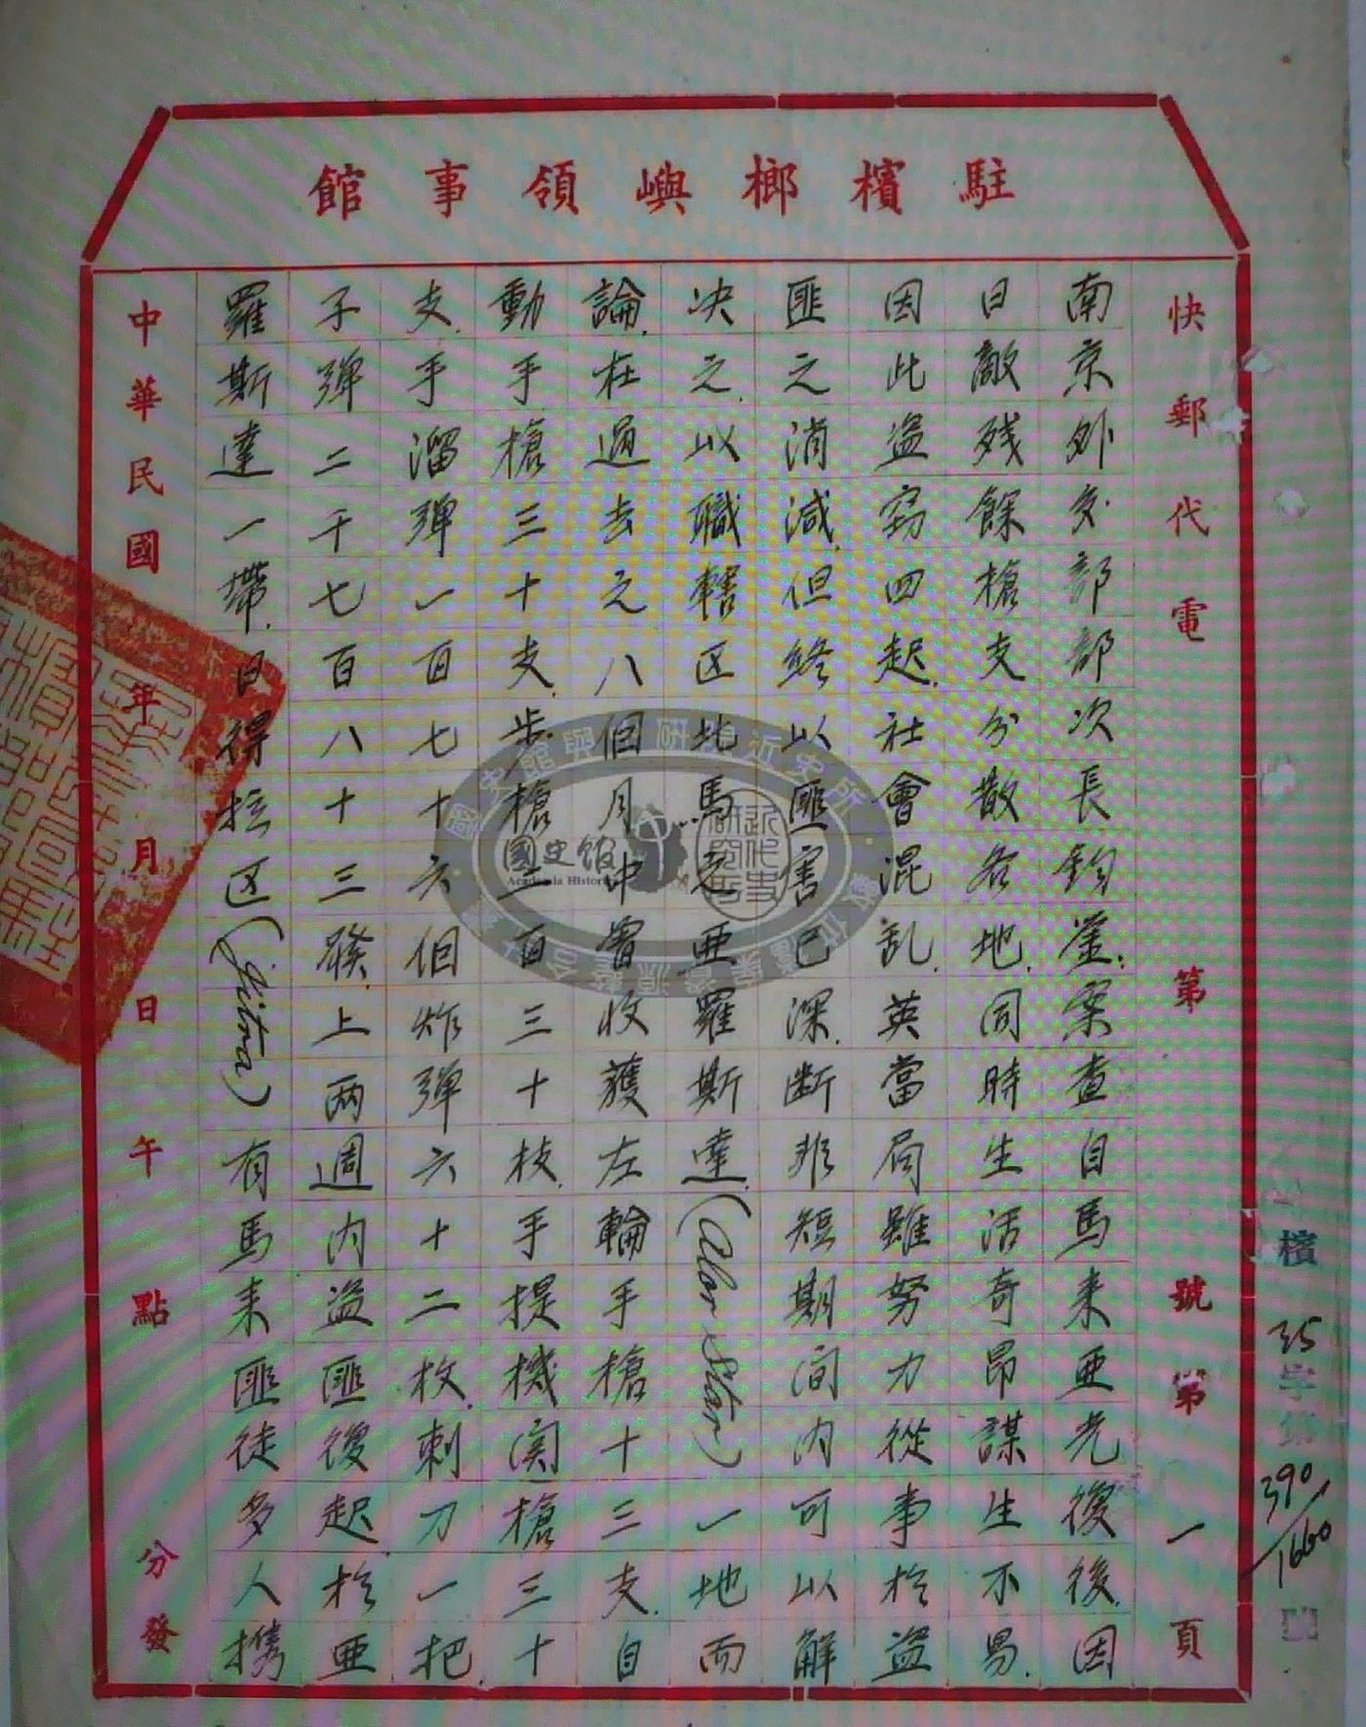 駐檳榔嶼領事館
快郵代電 第 號第一頁
南京外交部部次長鈞鑒：案查自馬來亞光復後．因
日敵殘餘槍支分散各地．同時生活奇昂謀生不易．
因此盜竊四起．社會混乱．英當局雖努力從事於盜
匪之消滅．但終以匪害已深．斷非短期間內可以解
決之．以職轄区北馬之亜羅斯達(Alor Star)一地而
論．在過去之八個月中曾收獲左輪手槍十三支．自
動手槍三十支．步槍二百三十枝．手提機関槍三十
支．手溜彈一百七十六個炸彈六十二枚．刺刀一把．
子彈二千七百八十三發．上兩週內盜匪復起．於亜
羅斯達一帶．日得拉区(Jitra)有馬来匪徒多人携
中華民國 年 月 日 午 點 分發
檳35字第390/1660號
國史館
Academia Historica